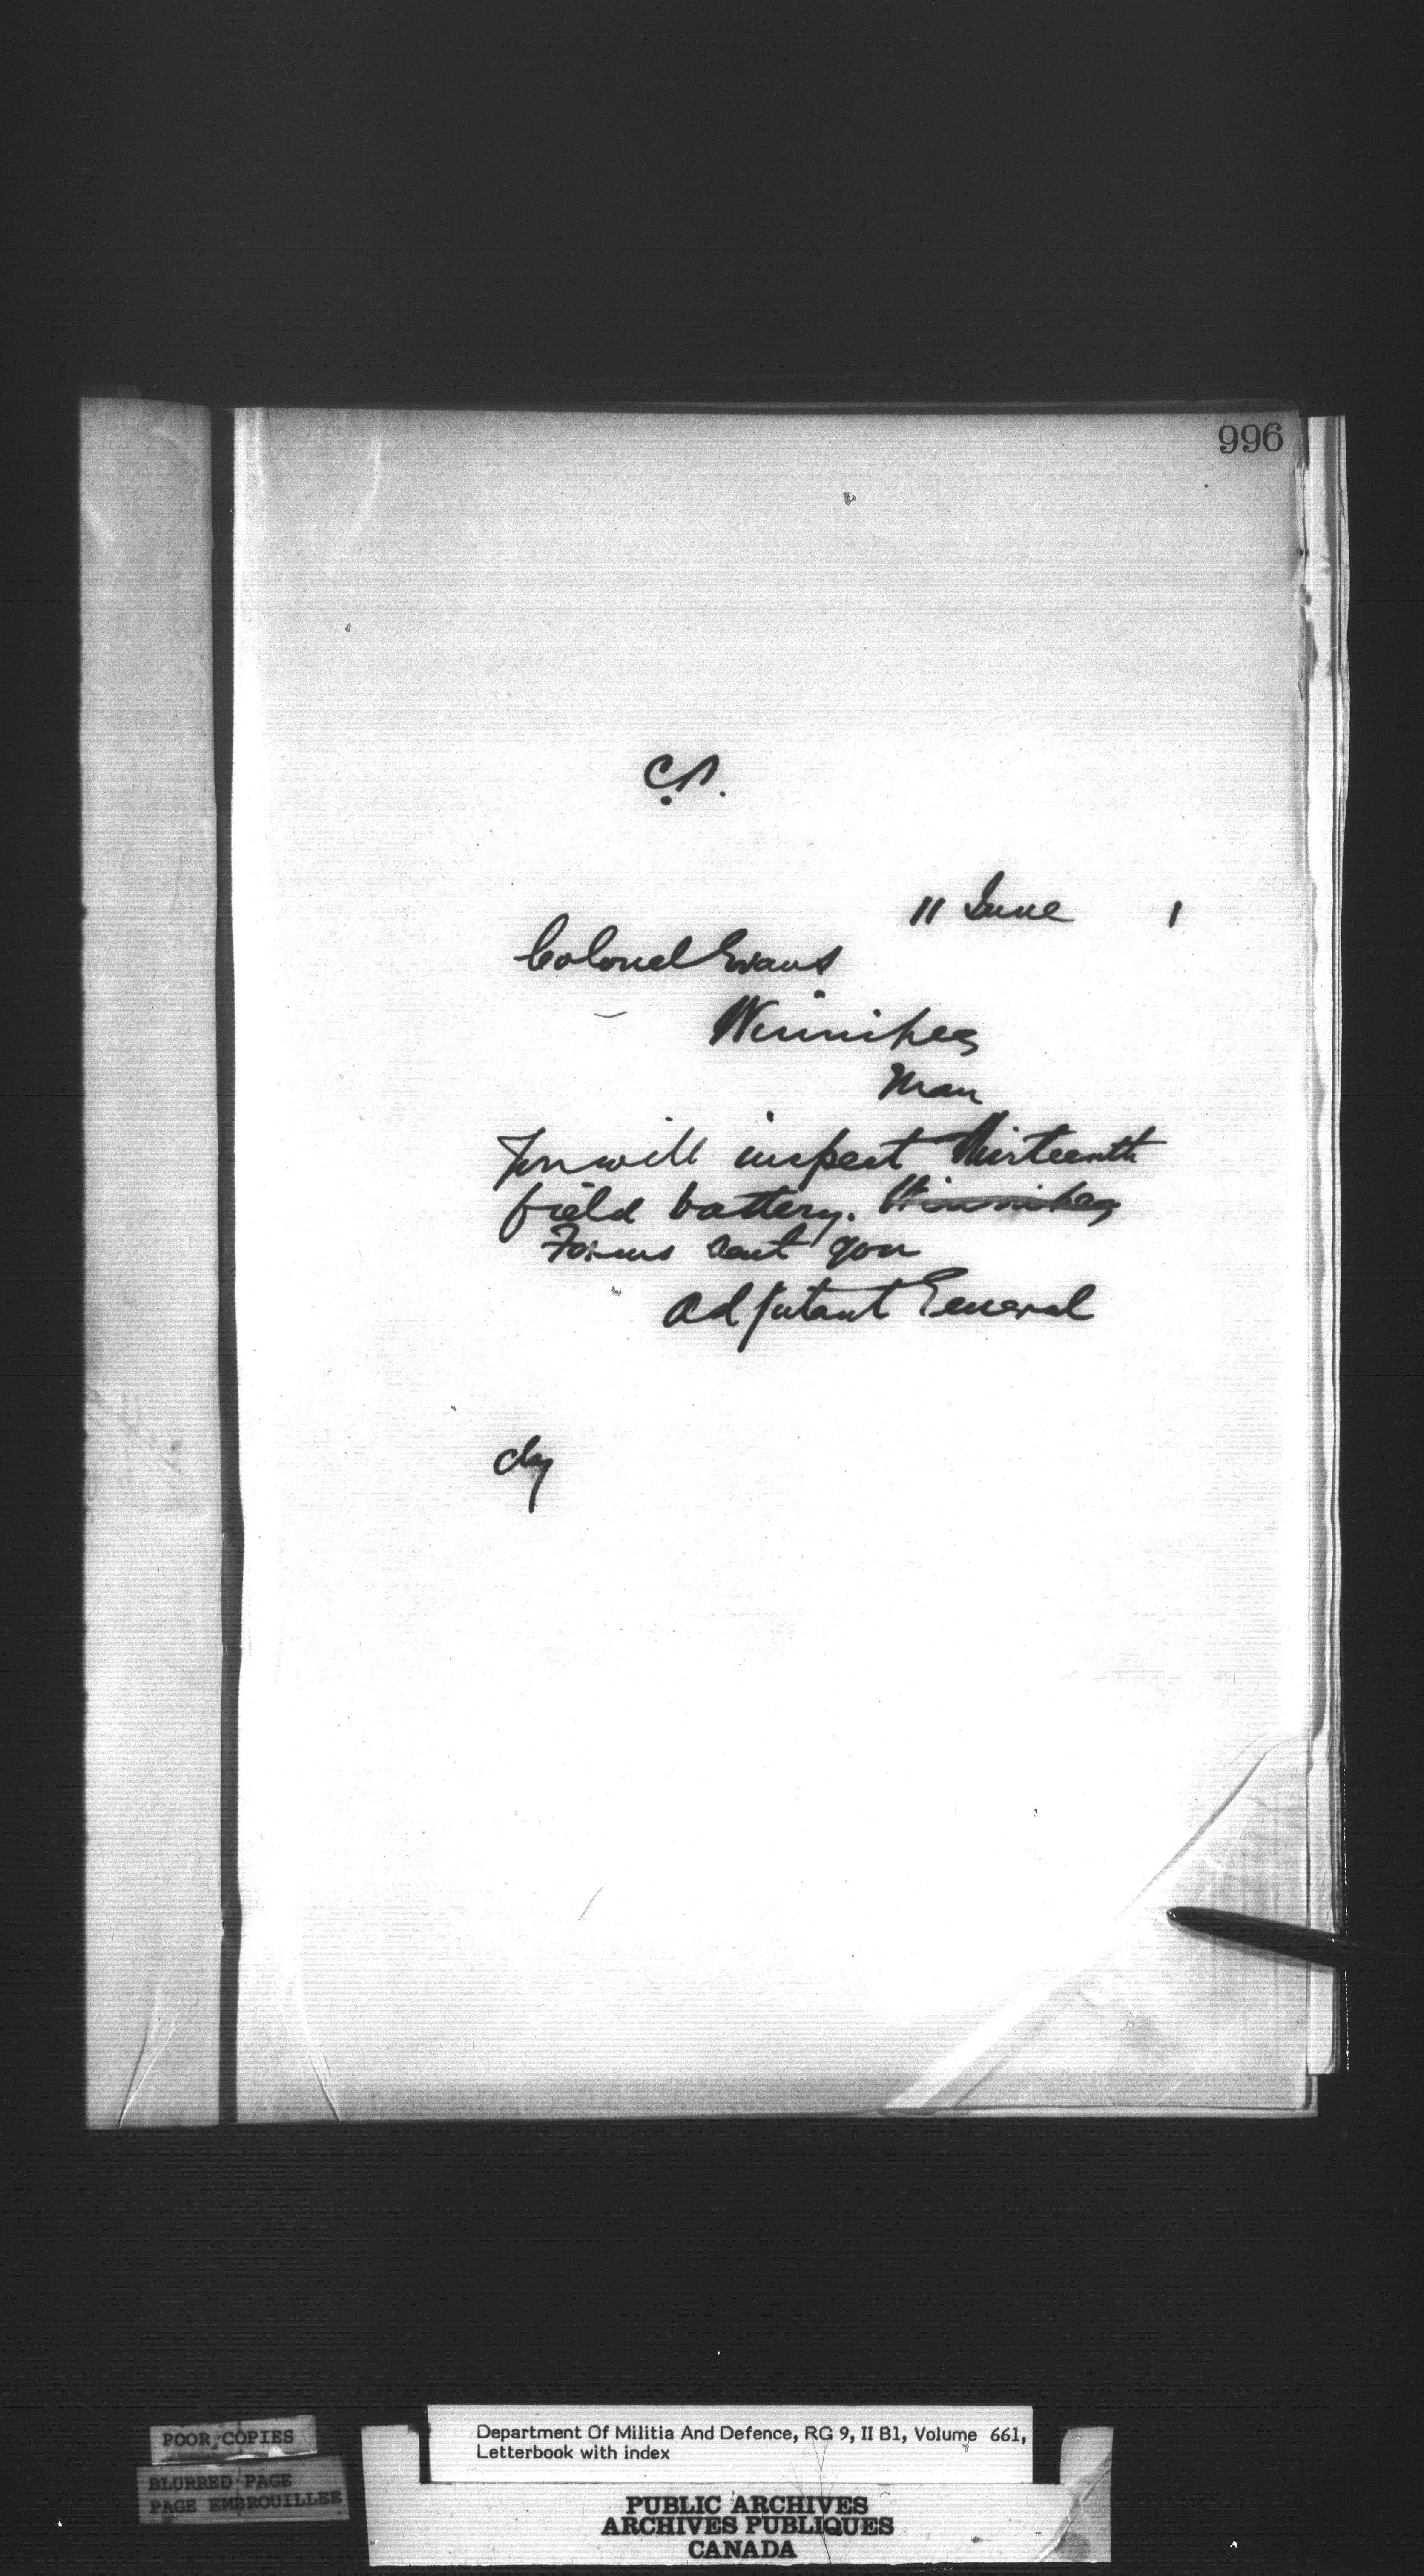 996
C.P.
11 June 1
Colonel Evans
Winnipeg
Man
You will inspect Thirteenth
field battery. Winnipeg
Forms sent you
Adjutant General
POOR COPIES
BLURRED PAGE
PAGE EMBROUILLEE
Department Of Militia And Defence, RG 9, II B1, Volume 661,
Letterbook with index
PUBLIC ARCHIVES
ARCHIVES PUBLIQUES
CANADA